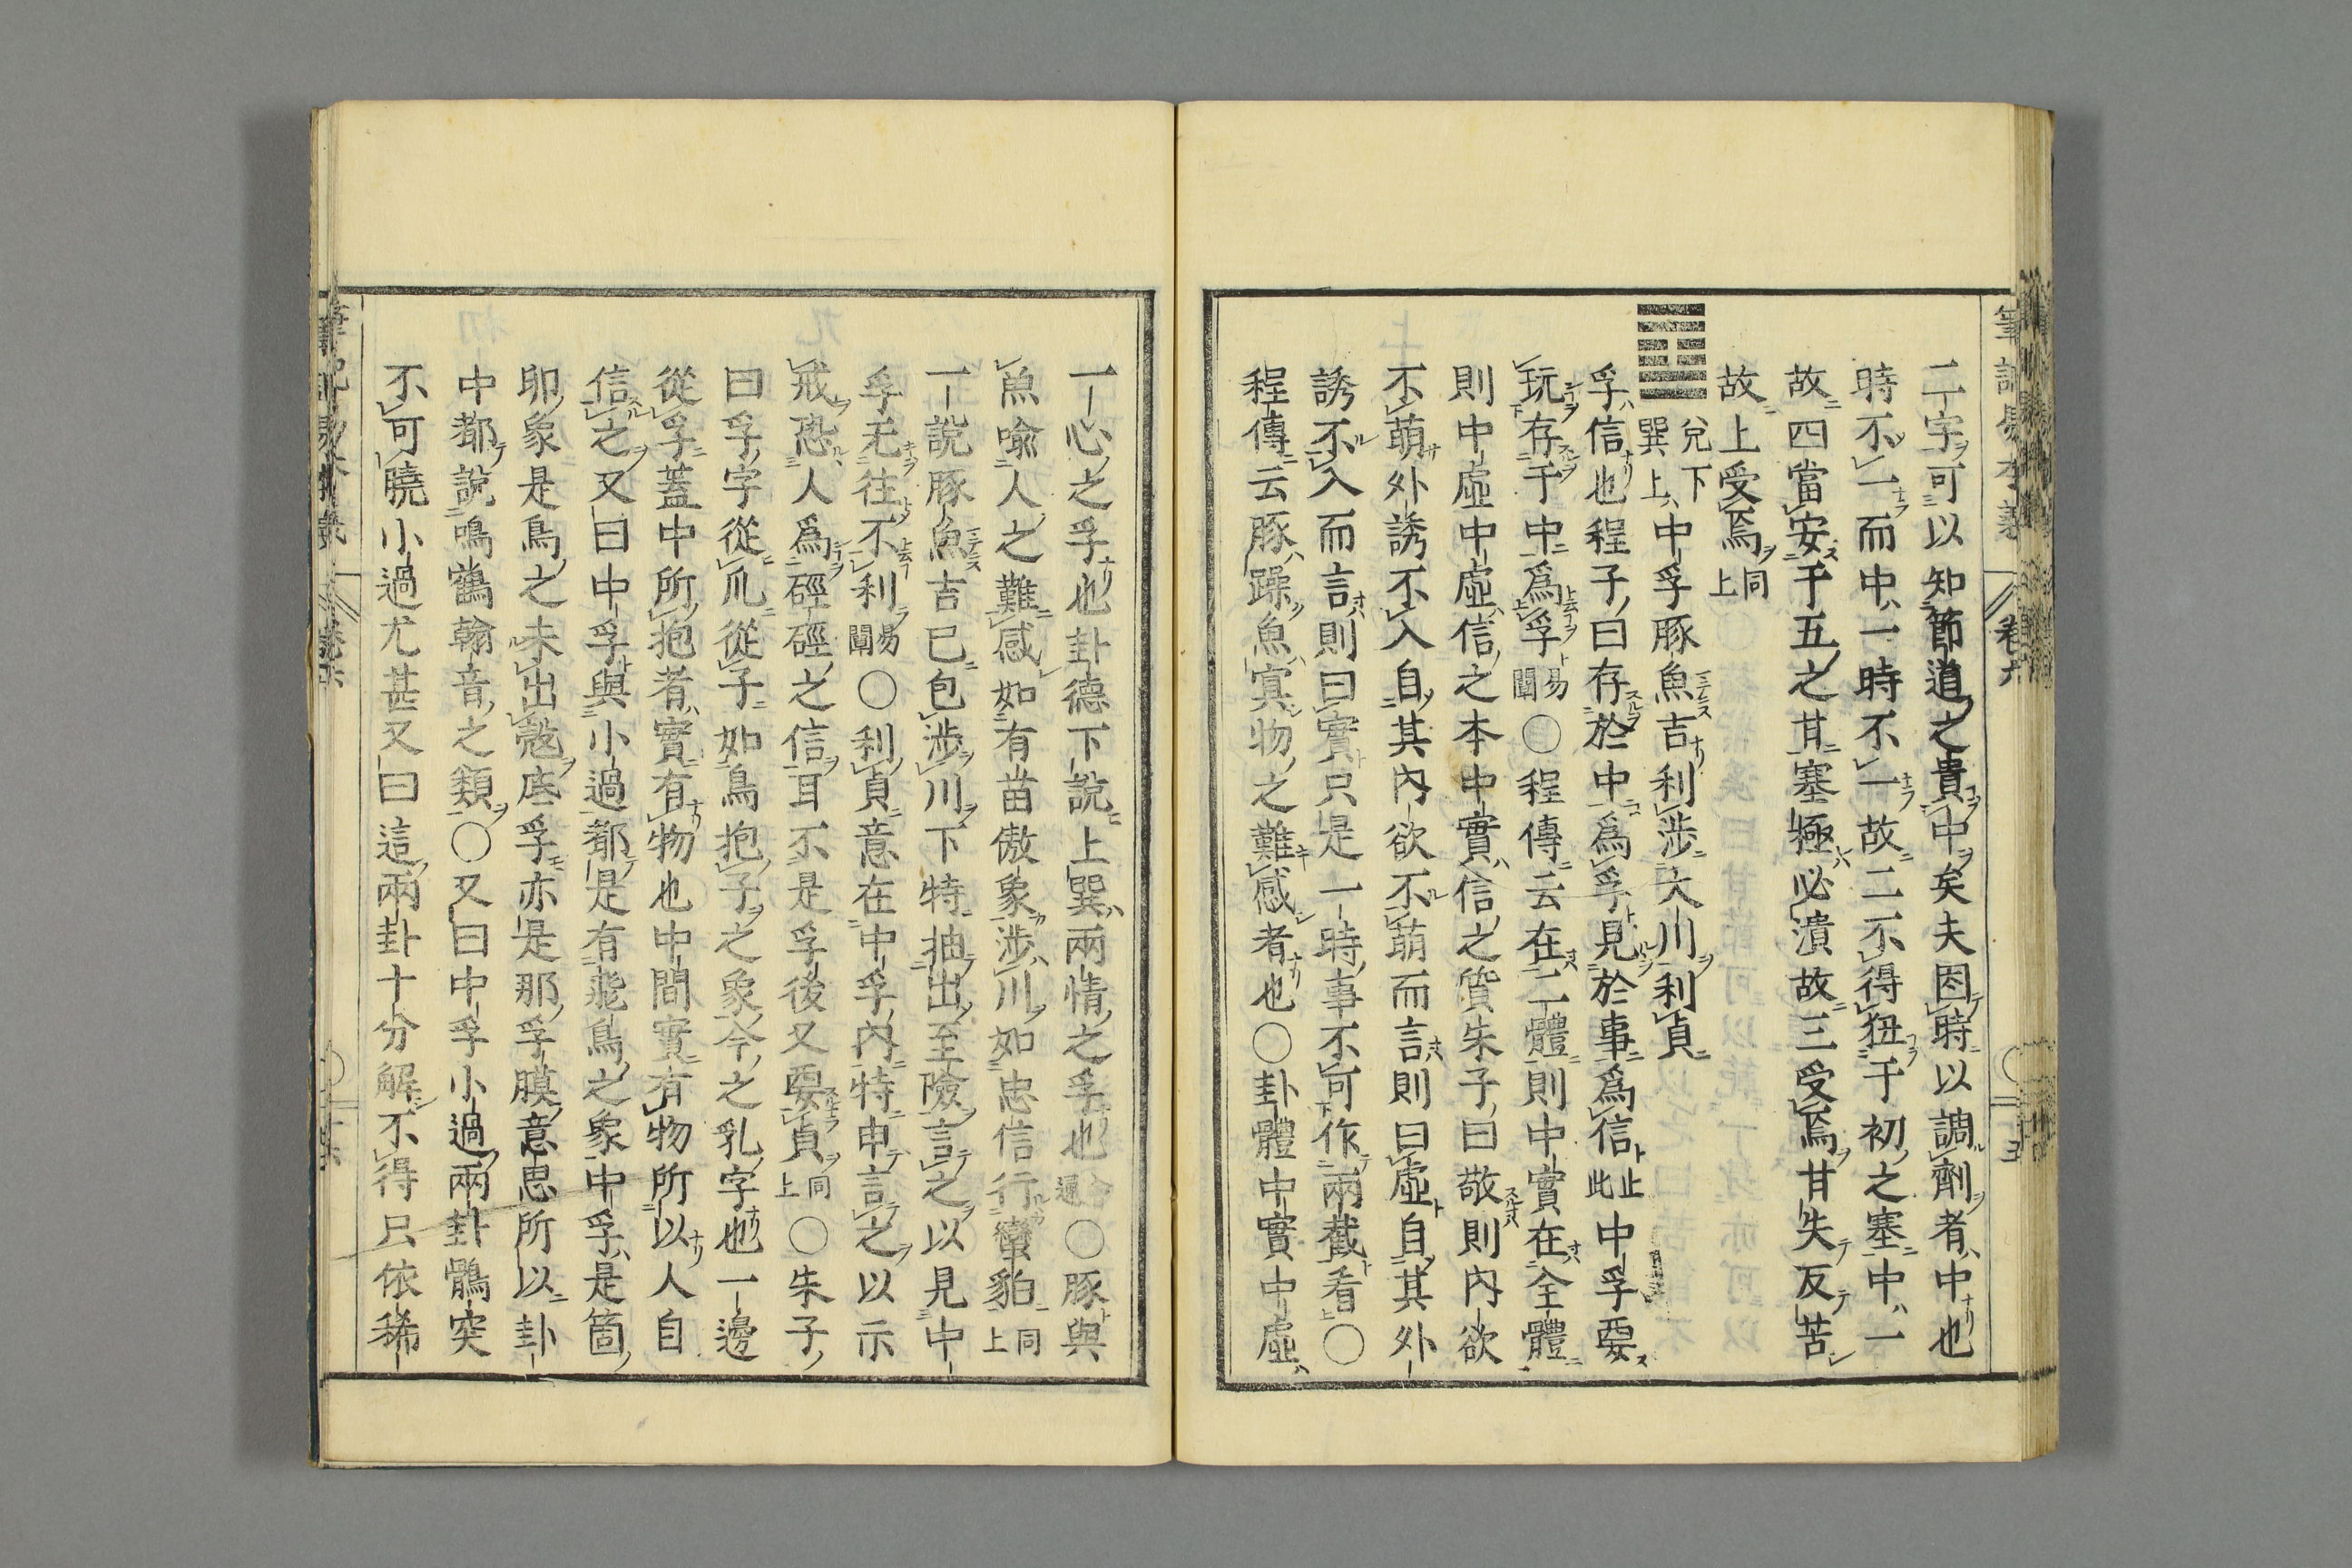 二字可以知節道之貴中矣夫因時以調劑者中也
時不一而中一時不一故二不得狃于初之塞中一
故四當安于五之甘塞極必潰故三受焉甘失反苦
故上受焉同上
兌下巽上中孚豚魚吉利涉大川利貞
孚信也程子曰存於中爲孚見於事爲信止此中孚要
玩存于中爲孚易聞〇程傳云在二體則中實在全體
則中虛中虛信之本中實信之質朱子曰敬則内欲
不萌外誘不入自其内欲不萌而言則曰虛自其外
誘不入而言則曰實只是一時事不可作兩截看〇
程傳云豚躁魚冥物之難感者也〇卦體中實中虛
一心之孚也卦德下說上巽兩情之孚也〇豚與
魚喩人之難感如有苗傲象涉川如忠信行蠻貊同上
一說豚魚吉已包涉川下特抽出至險言之以見中
孚无往不利易聞〇利貞意在中孚内特申言之以示
戒恐人爲硜硜之信耳不是孚後又要貞同上〇朱子
曰孚字從爪從子如鳥抱子之象今之乳字也一邊
從孚蓋中所抱者實有物也中間實有物所以人自
信之又曰中孚與小過都是有飛鳥之象中孚是箇
卵象是鳥之未出殼底孚亦是那孚膜意思所以卦
中都說鳴鶴翰音之類〇又曰中孚小過兩卦鶻突
不可曉小過尤甚又曰這兩卦十分解不得只依稀